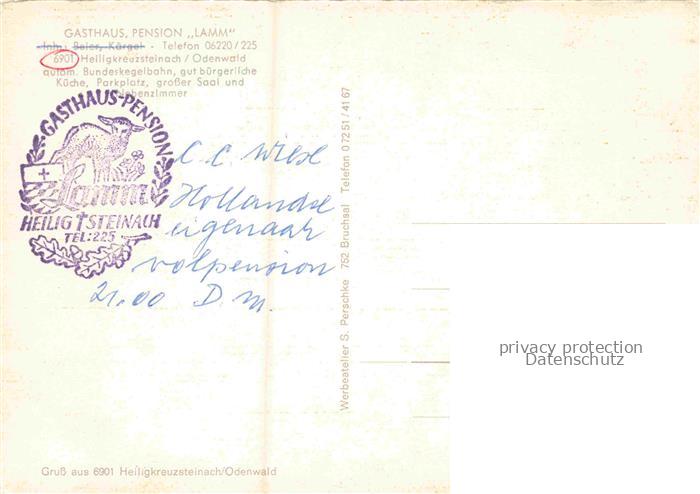 GASTHAUS, PENSION „LAMM"
Inh.: Beier, Kärgel - Telefon 06220/225
6901 Heiligkreuzsteinach/Odenwald
autom. Bundeskegelbahn, gut bürgerliche
Küche, Parkplatz, großer Saal und
Nebenzimmer
GASTHAUS-PENSION
Lamm
HEILIG † STEINACH
TEL: 225
C. C. Wiese
Hollandse
eigenaar
volpension
21.00 D. M.
Werbeatelier S. Perschke 752 Bruchsal Telefon 07251/4167
privacy protection
Datenschutz
Gruß aus 6901 Heiligkreuzsteinach/Odenwald